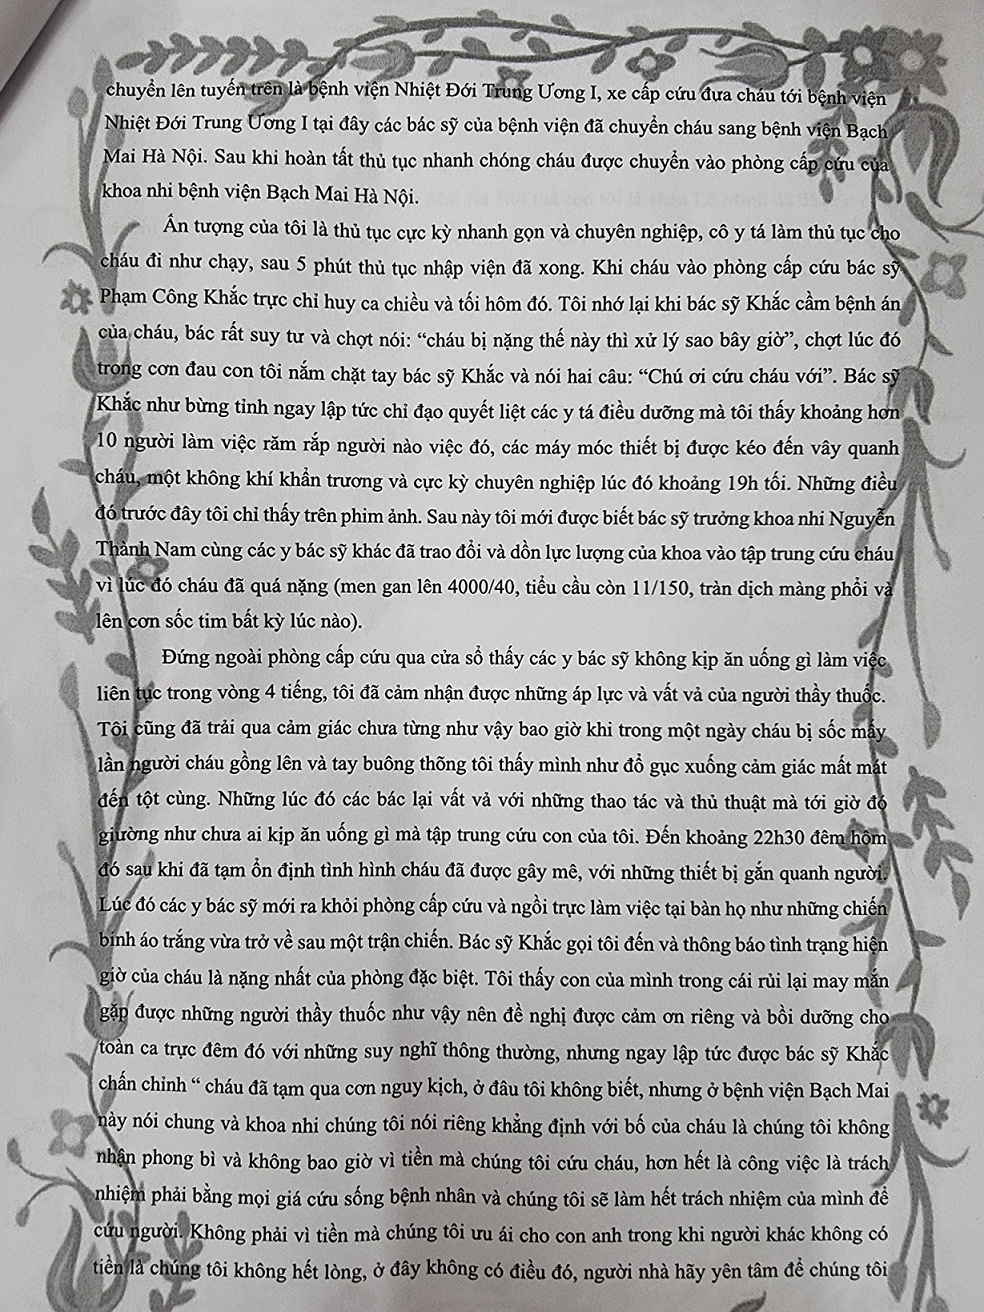 chuyển lên tuyến trên là bệnh viện Nhiệt Đới Trung Ương I, xe cấp cứu đưa cháu tới bệnh viện
Nhiệt Đới Trung Ương I tại đây các bác sỹ của bệnh viện đã chuyển cháu sang bệnh viện Bạch
Mai Hà Nội. Sau khi hoàn tất thủ tục nhanh chóng cháu được chuyển vào phòng cấp cứu của
khoa nhi bệnh viện Bạch Mai Hà Nội.
Ấn tượng của tôi là thủ tục cực kỳ nhanh gọn và chuyên nghiệp, cô y tá làm thủ tục cho
cháu đi như chạy, sau 5 phút thủ tục nhập viện đã xong. Khi cháu vào phòng cấp cứu bác sỹ
Phạm Công Khắc trực chỉ huy ca chiều và tối hôm đó. Tôi nhớ lại khi bác sỹ Khắc cầm bệnh án
của cháu, bác rất suy tư và chợt nói: “cháu bị nặng thế này thì xử lý sao bây giờ”, chợt lúc đó
trong cơn đau con tôi nắm chặt tay bác sỹ Khắc và nói hai câu: “Chú ơi cứu cháu với”. Bác sỹ
Khắc như bừng tỉnh ngay lập tức chỉ đạo quyết liệt các y tá điều dưỡng mà tôi thấy khoảng hơn
10 người làm việc răm rắp người nào việc đó, các máy móc thiết bị được kéo đến vây quanh
cháu, một không khí khẩn trương và cực kỳ chuyên nghiệp lúc đó khoảng 19h tối. Những điều
đó trước đây tôi chỉ thấy trên phim ảnh. Sau này tôi mới được biết bác sỹ trưởng khoa nhi Nguyễn
Thành Nam cùng các y bác sỹ khác đã trao đổi và dồn lực lượng của khoa vào tập trung cứu cháu
vì lúc đó cháu đã quá nặng (men gan lên 4000/40, tiểu cầu còn 11/150, tràn dịch màng phổi và
lên cơn sốc tim bất kỳ lúc nào).
Đứng ngoài phòng cấp cứu qua cửa sổ thấy các y bác sỹ không kịp ăn uống gì làm việc
liên tục trong vòng 4 tiếng, tôi đã cảm nhận được những áp lực và vất vả của người thầy thuốc.
Tôi cũng đã trải qua cảm giác chưa từng như vậy bao giờ khi trong một ngày cháu bị sốc mấy
lần người cháu gồng lên và tay buông thõng tôi thấy mình như đổ gục xuống cảm giác mất mát
đến tột cùng. Những lúc đó các bác lại vất vả với những thao tác và thủ thuật mà tới giờ đó
giường như chưa ai kịp ăn uống gì mà tập trung cứu con của tôi. Đến khoảng 22h30 đêm hôm
đó sau khi đã tạm ổn định tình hình cháu đã được gây mê, với những thiết bị gắn quanh người.
Lúc đó các y bác sỹ mới ra khỏi phòng cấp cứu và ngồi trực làm việc tại bàn họ như những chiến
binh áo trắng vừa trở về sau một trận chiến. Bác sỹ Khắc gọi tôi đến và thông báo tình trạng hiện
giờ của cháu là nặng nhất của phòng đặc biệt. Tôi thấy con của mình trong cái rủi lại may mắn
gặp được những người thầy thuốc như vậy nên đề nghị được cảm ơn riêng và bồi dưỡng cho
toàn ca trực đêm đó với những suy nghĩ thông thường, nhưng ngay lập tức được bác sỹ Khắc
chấn chỉnh “ cháu đã tạm qua cơn nguy kịch, ở đâu tôi không biết, nhưng ở bệnh viện Bạch Mai
này nói chung và khoa nhi chúng tôi nói riêng khẳng định với bố của cháu là chúng tôi không
nhận phong bì và không bao giờ vì tiền mà chúng tôi cứu cháu, hơn hết là công việc là trách
nhiệm phải bằng mọi giá cứu sống bệnh nhân và chúng tôi sẽ làm hết trách nhiệm của mình để
cứu người. Không phải vì tiền mà chúng tôi ưu ái cho con anh trong khi người khác không có
tiền là chúng tôi không hết lòng, ở đây không có điều đó, người nhà hãy yên tâm để chúng tôi